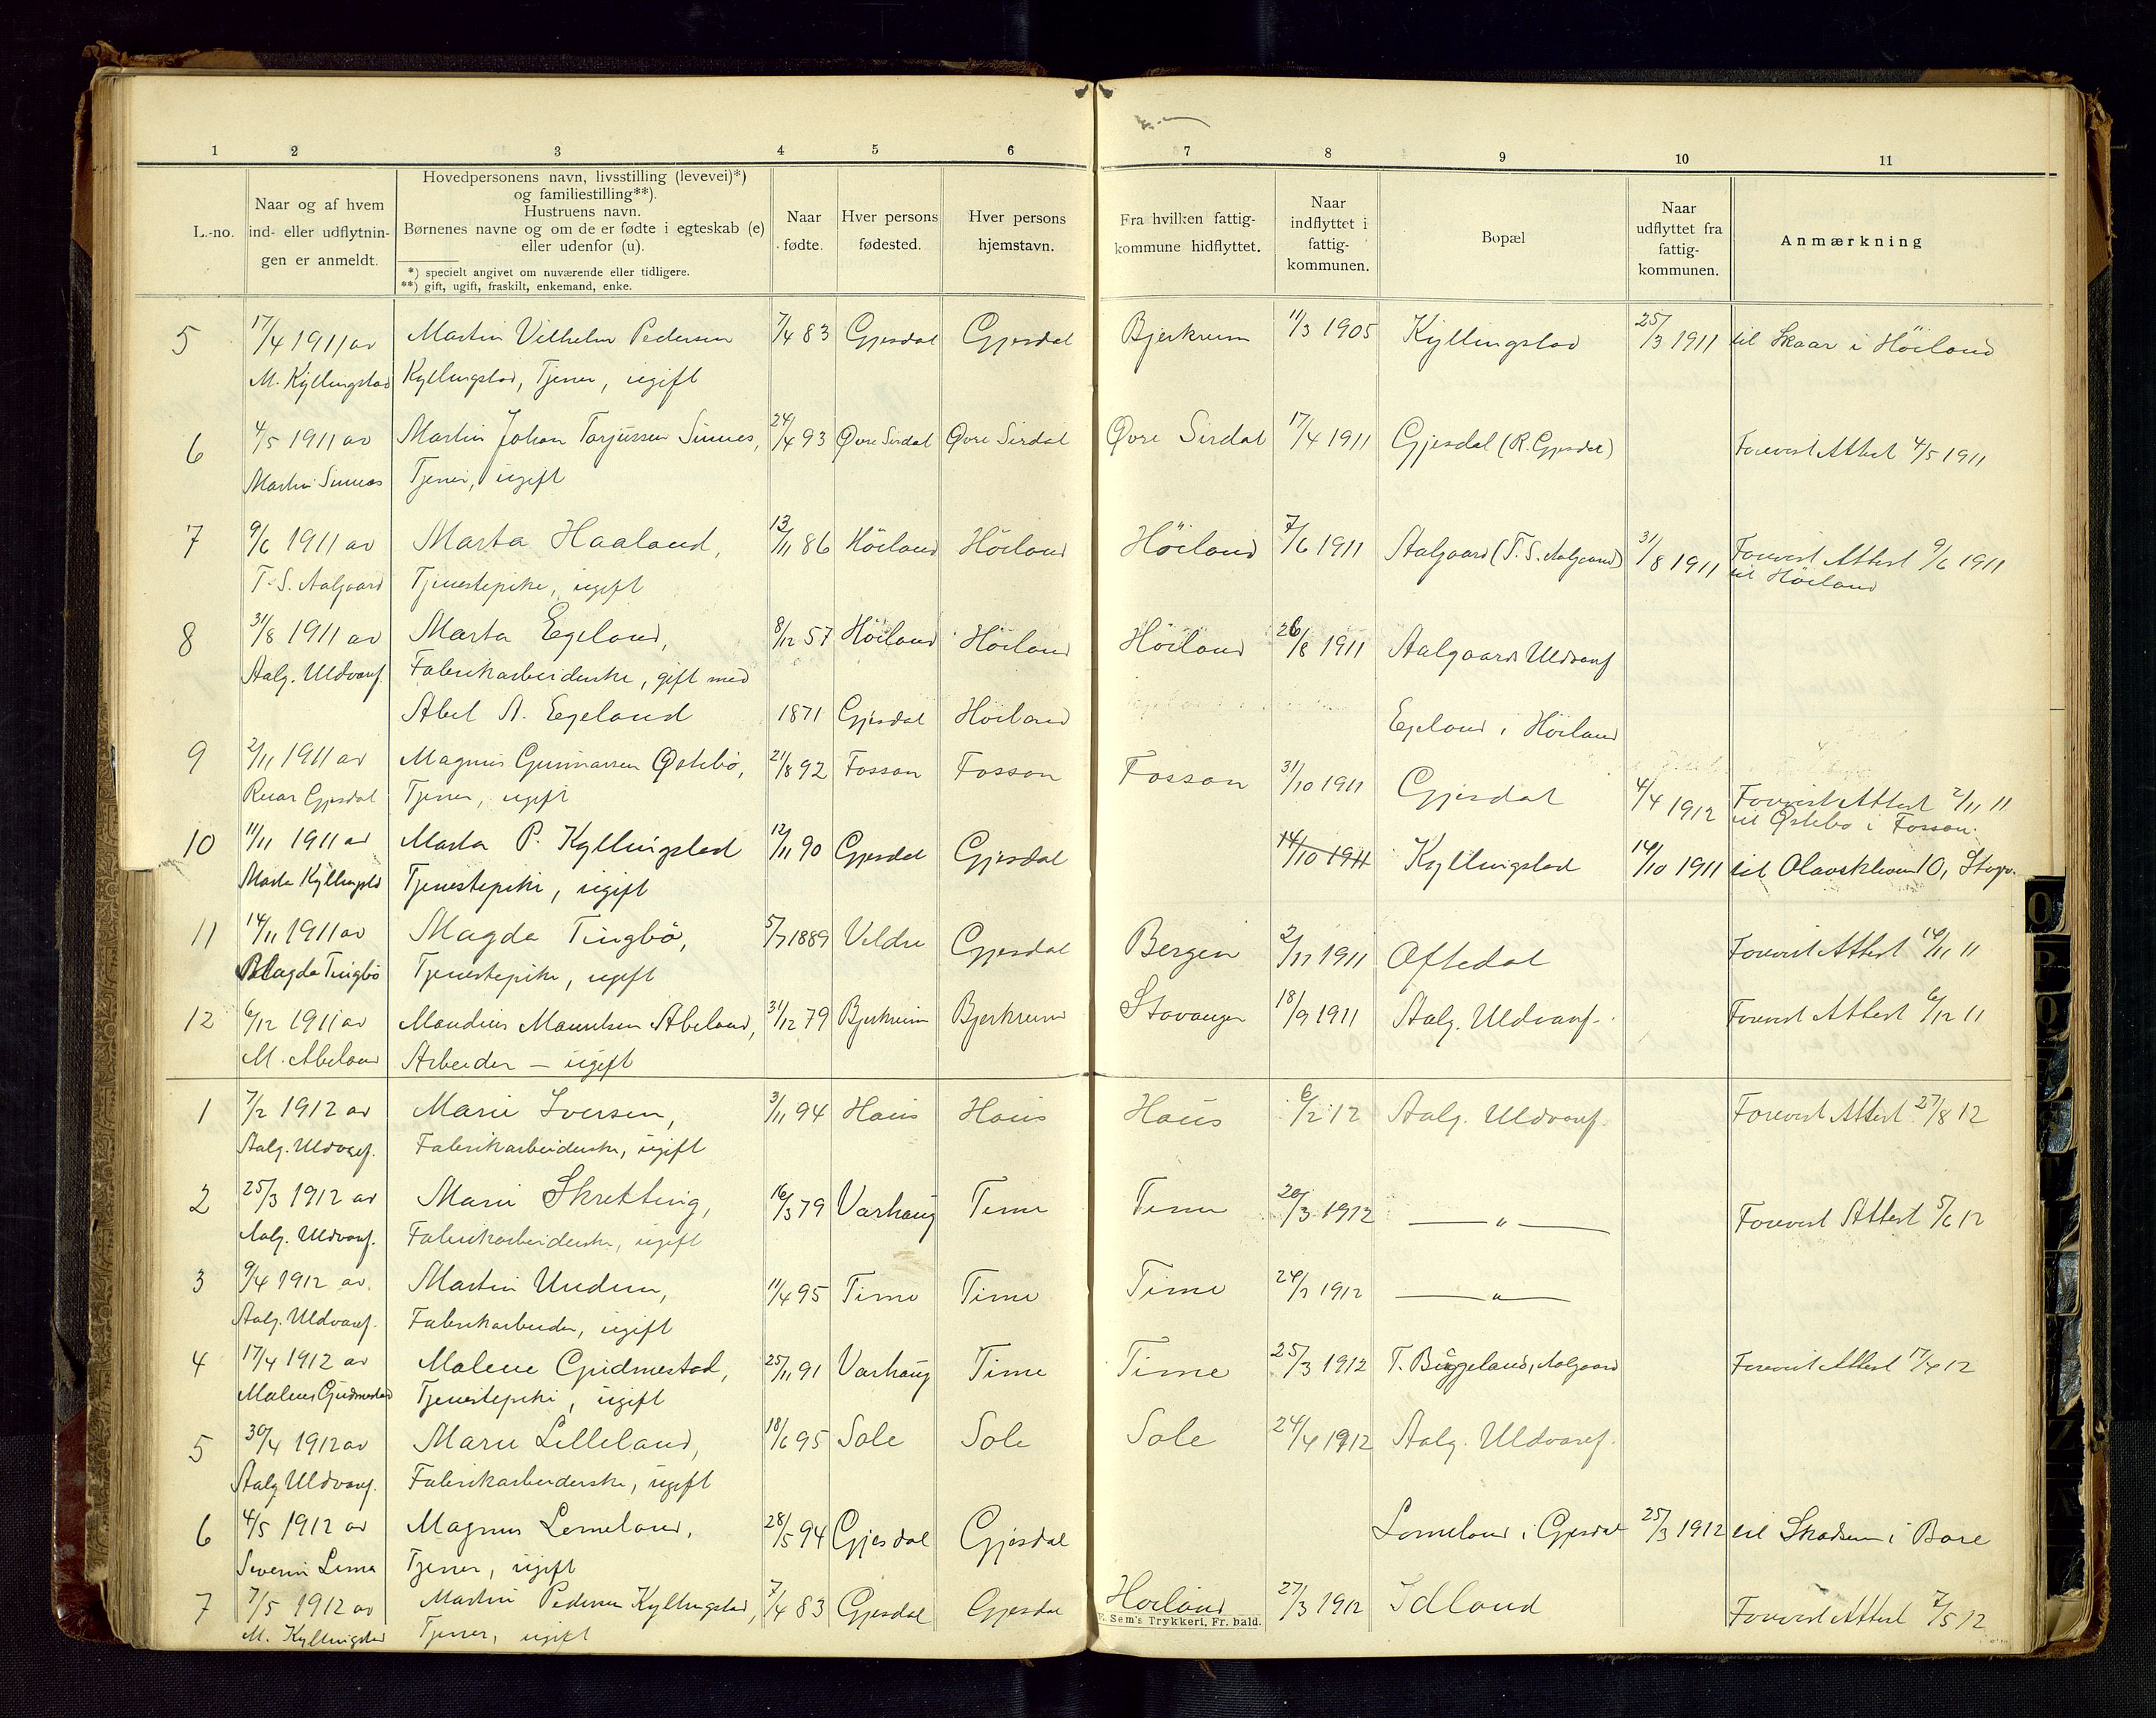 1 2 3 4 5 6 7 8 9 10 11
L.-no.
Naar og af hvem
ind- eller udflytnin-
gen er anmeldt.
Hovedpersonens navn, livsstilling (levevei)*)
og familiestilling**).
Hustruens navn.
Børnenes navne og om de er fødte i egteskab (e)
eller udenfor (u).
*) specielt angivet om nuværende eller tidligere.
**) gift, ugift, fraskilt, enkemand, enke.
Naar
fødte.
Hver persons
fødested.
Hver persons
hjemstavn.
Fra hvilken fattig-
kommune hidflyttet.
Naar
indflyttet i
fattig-
kommunen.
Bopæl
Naar
udflyttet fra
fattig-
kommunen.
Anmærkning
5 17/4 1911 av Martin Vilhelm Pedersen 7/4 83 Gjesdal Gjesdal Bjerkreim 11/3 1905 Kyllingstad 25/3 1911 til Skaar i Höiland
M. Kyllingstad Kyllingstad, Tjener, ugift
6 4/5 1911 av Martin Johan Torjussen Sinnes, 24/4 93 Øvre Sirdal Øvre Sirdal Øvre Sirdal 17/4 1911 Gjesdal (R. Gjesdal) Forevist Attest 4/5 1911
Martin Sinnes Tjener, ugift
7 9/6 1911 av Marta Haaland, 13/11 86 Höiland Höiland Höiland 7/6 1911 Aalgaard (T. S. Aalgaard) 31/8 1911 Forevist Attest 9/6 1911
til Höiland
T. S. Aalgaard Tjenestepike, ugift
8 31/8 1911 av Marta Egeland, 8/12 57 Höiland Höiland Höiland 26/8 1911 Aalgaards Uldvarf
Aalg. Uldvarf. Fabrikarbeiderske, gift med
Abel A. Egeland 1871 Gjesdal Höiland Egeland i Höiland
9 2/11 1911 av Magnus Gunnarsen Østebö, 21/8 92 Fossan Fossan Fossan 31/10 1911 Gjesdal 4/4 1912 Forevist Attest 2/11 11
til Østebö i Fossan.
Reiar Gjesdal Tjener, ugift
10 11/11 1911 av Marta P. Kyllingstad 12/11 90 Gjesdal Gjesdal 14/10 1911 Kyllingstad 14/10 1911 til Olavskleven 10, Stvgr.
Marta Kyllingstd Tjenestepike, ugift
11 14/11 1911 av Magda Tingbö, 5/7 1889 Veldre Gjesdal Bergen 2/11 1911 Oftedal Forevist Attest 14/11 11
Magda Tingbö Tjenestepike, ugift
12 6/12 1911 av Maudius Mauritsen Abeland, 31/12 79 Bjerkreim Bjerkreim Stavanger 18/9 1911 Aalg. Uldvarf. Forevist Attest 6/12 11
M. Abeland Arbeider — ugift
1 7/2 1912 av Marie Iversen, 3/11 94 Haus Haus Haus 6/2 12 Aalg. Uldvarf. Forevist Attest 27/8 12
Aalg. Uldvarf. Fabrikarbeiderske, ugift
2 25/3 1912 av Marie Skretting, 16/3 79 Varhaug Time Time 20/3 1912 — " — Forevist Attest 5/6 12
Aalg. Uldvarf. Fabrikarbeiderske, ugift
3 9/4 1912 av Martin Undem, 11/4 95 Time Time Time 24/2 1912 — " —
Aalg. Uldvarf. Fabrikarbeider, ugift
4 17/4 1912 av Malene Gudmestad, 25/11 91 Varhaug Time Time 25/3 1912 T. Byggeland, Aalgaard Forevist Attest 17/4 12
Malene Gudmestad Tjenestepike, ugift
5 30/4 1912 av Marie Lilleland, 18/6 95 Sole Sole Sole 24/4 1912 Aalg. Uldvarf.
Aalg Uldvarf. Fabrikarbeiderske, ugift
6 4/5 1912 av Magnus Lomeland, 28/5 94 Gjesdal Gjesdal Lomeland i Gjesdal 25/3 1912 til Skadsem i Bore
Severin Lima Tjener, ugift
7 7/5 1912 av Martin Pedersen Kyllingstad, 7/4 83 Gjesdal Gjesdal Höiland 27/3 1912 Idland Forevist Attest 7/5 12
M. Kyllingstad Tjener, ugift
E. Sem's Trykkeri, Fr.hald.
O
P
Q